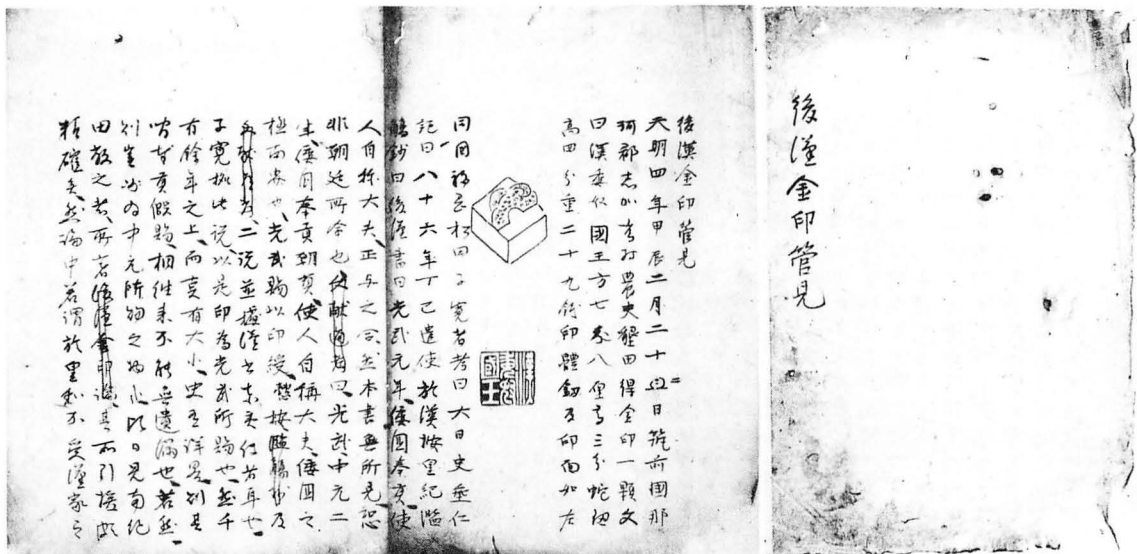 後漢金印管見
後漢金印管見
天明四年甲辰二月二十日筑前國那
珂郡志加村農夫墾田得金印一顆文
曰漢委奴國王方七八厘高三分蛇鈕
高四分重二十九印體鈕及印面如左
漢委奴國王
同国子寛者考曰大日史垂仁
記曰八十六年丁巳遣使於漢按里紀臨
觴鈔曰後漢書曰光武元年倭國奉貢使
人自称大夫正与之合然本書無所見恐
非朝廷所命也献通考曰光武中元二
年倭国奉貢朝賀使人自稱大夫倭国之
極南界也光武賜以印綬按臨觴抄及
二説並據漢書東夷伝者耳也
子寛據此説以是印為光武所賜也然千
有餘年之上而有大小史有詳畧
貢假賜相継来不能無遺漏也若然
則豈為中元所賜之物以見南紀
田敬之者所著後漢金印譜其所引援頗
精確矣然編中若謂於不受漢家之